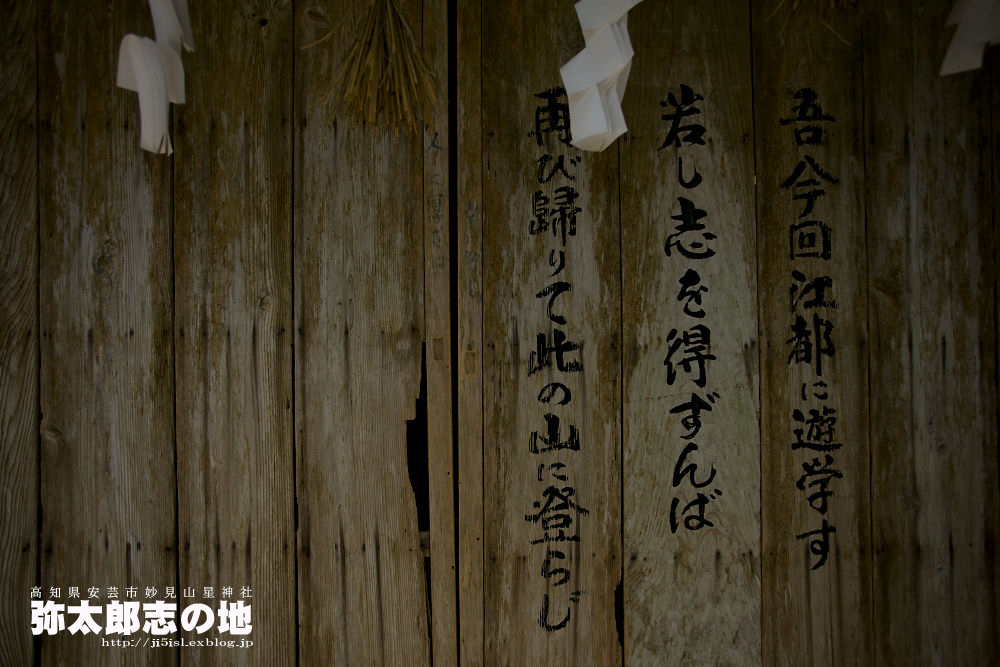 吾今回江都に遊学す
若し志を得ずんば
再び歸りて此の山に登らじ
高知県安芸市妙見山星神社
弥太郎志の地
http://ji5isl.exblog.jp